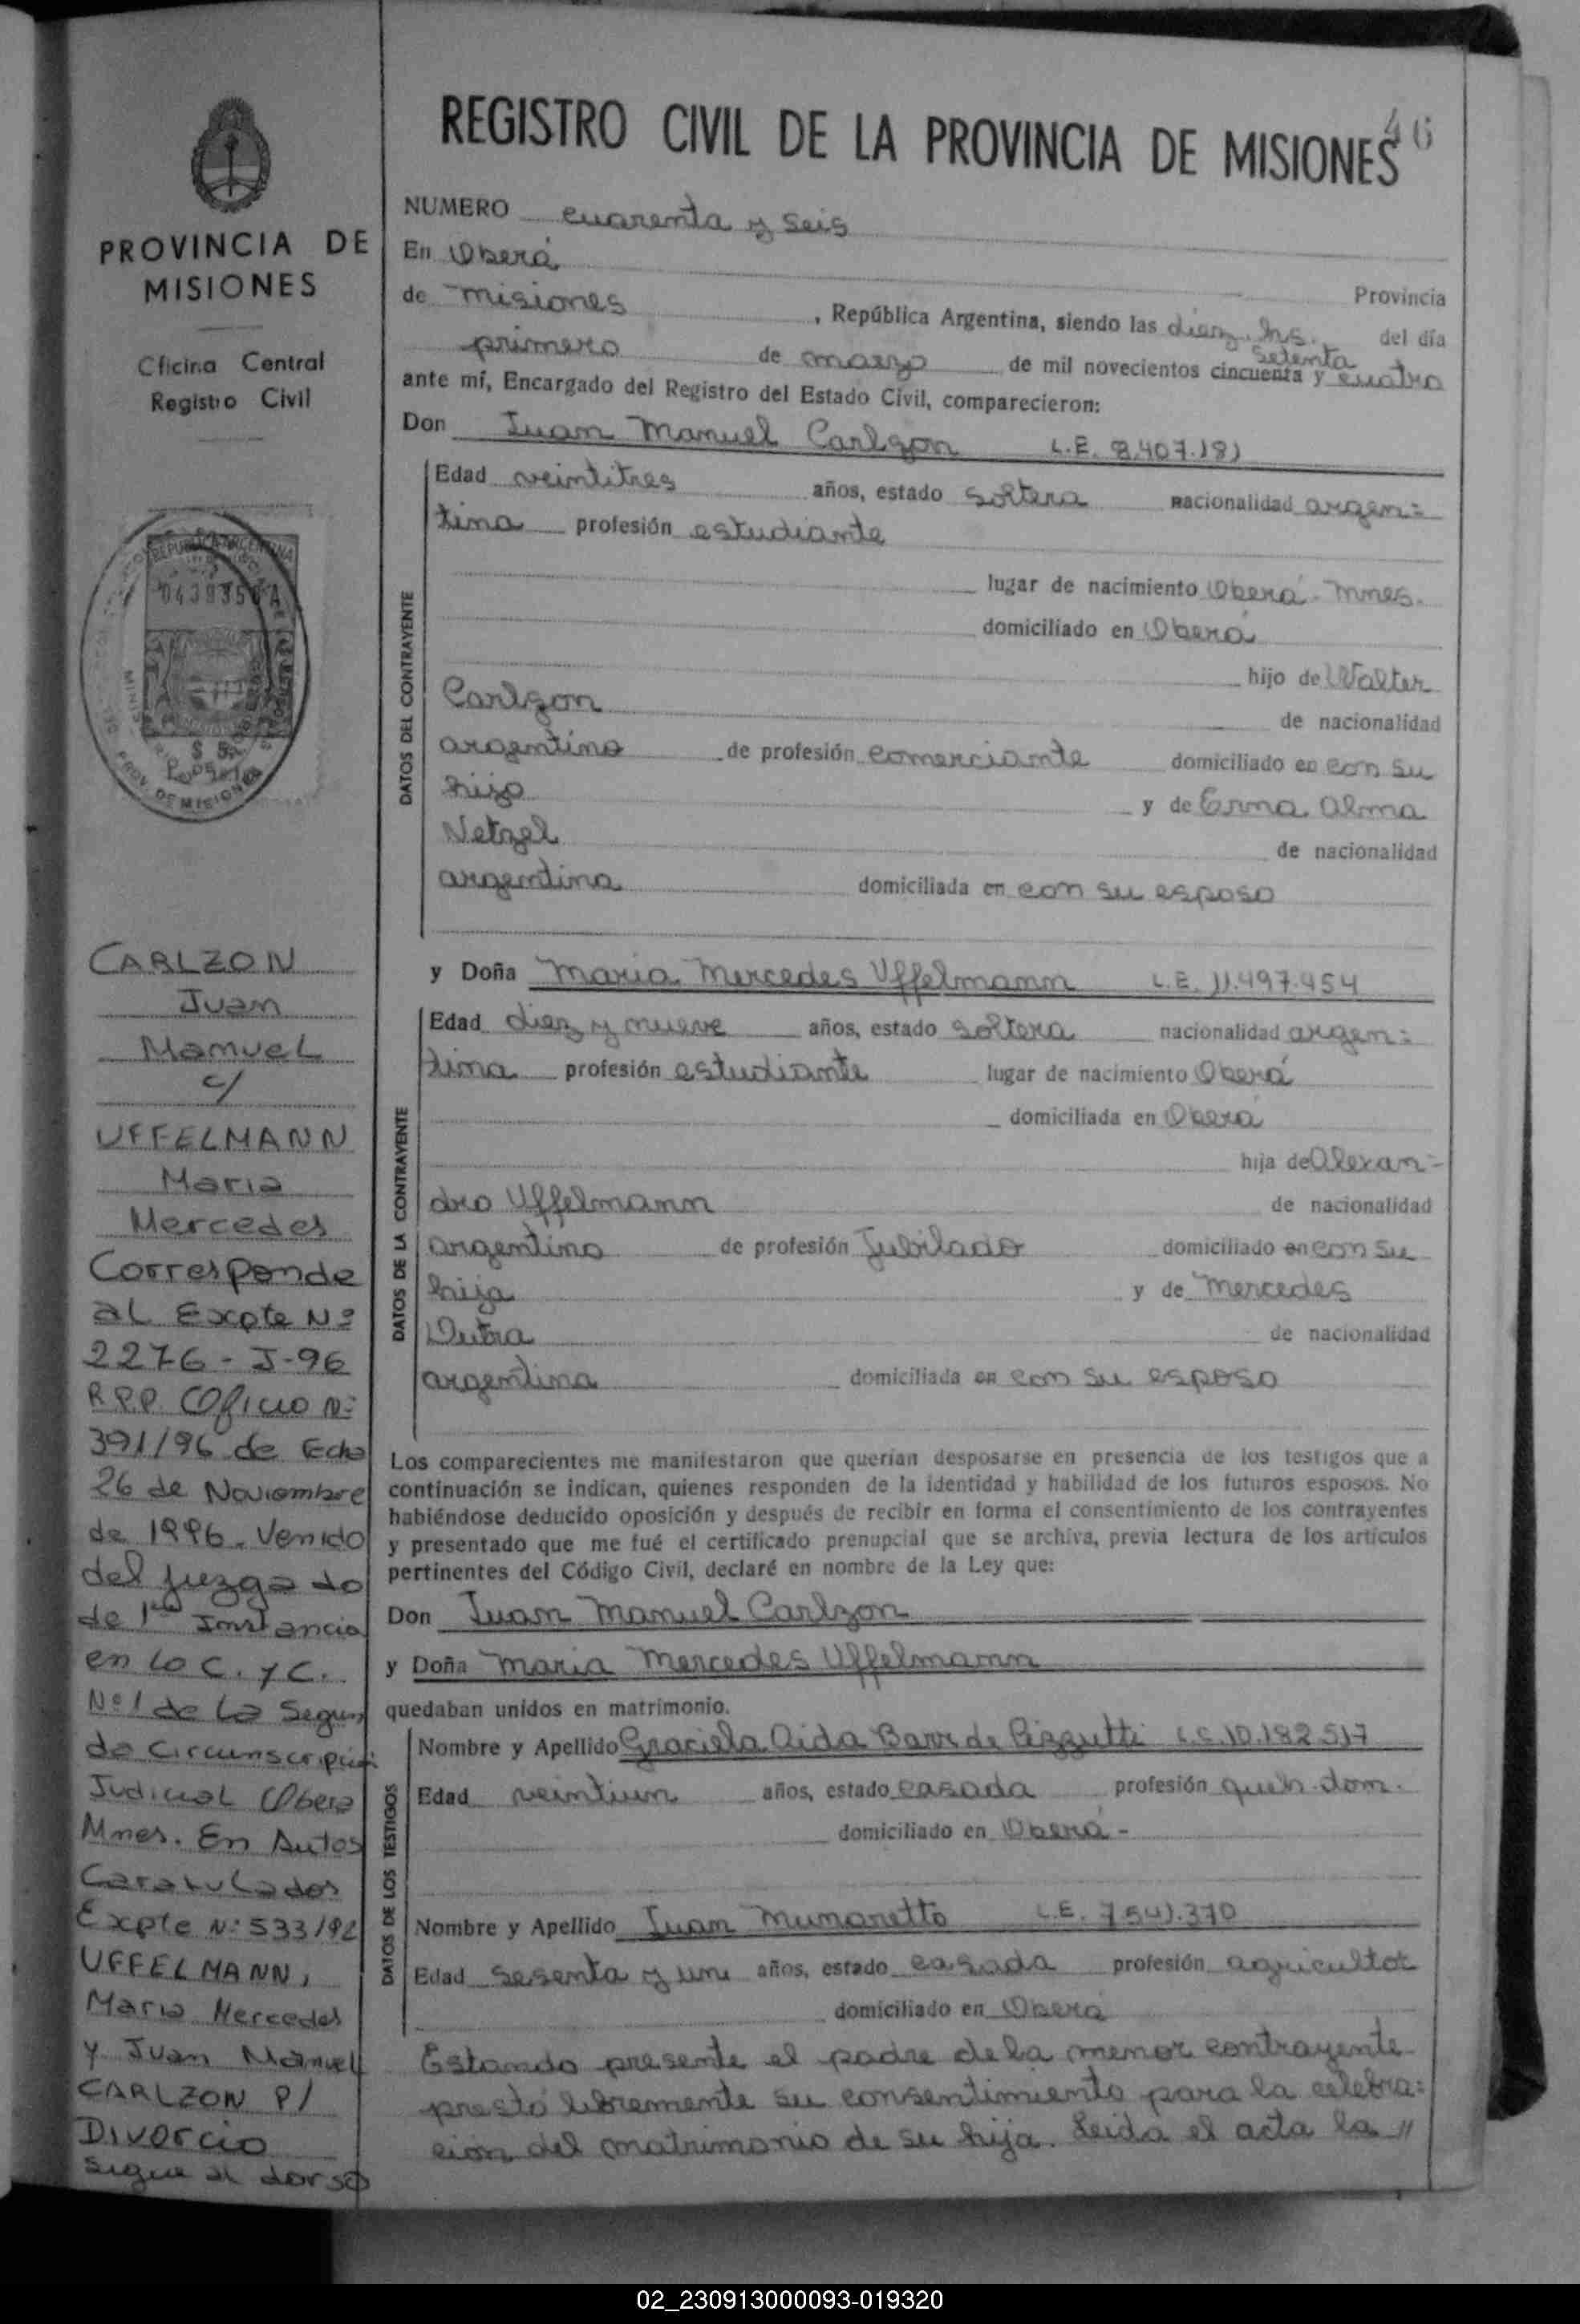 46
REGISTRO CIVIL DE LA PROVINCIA DE MISIONES
PROVINCIA DE
MISIONES
Oficina Central
Registro Civil
REPUBLICA ARGENTINA
$ 5
PROV. DE MISIONES
CARLZON
Juan
Manuel
c/
UFFELMANN
Maria
Mercedes
Corresponde
al Expte Nº
2276-J-96
R.P.P. Oficio Nº
391/96 de Echa
26 de Noviembre
de 1996. Venido
del juzgado
de 1ra Instancia
en lo C. y C.
Nº1 de la Segun
da Circunscripción
Judicial Obera
Mnes. En Autos
Caratulados
Expte Nº 533/92
UFFELMANN,
Maria Mercedes
y Juan Manuel
CARLZON P/
Divorcio
sigue al dorso
NUMERO cuarenta y seis
En Oberá
Provincia
de misiones, República Argentina, siendo las diez hs. del día
primero de marzo de mil novecientos cincuenta setenta y cuatro
ante mí, Encargado del Registro del Estado Civil, comparecieron:
Don Juan Manuel Carlzon L.E. 8.407.181
DATOS DEL CONTRAYENTE
Edad veintitres años, estado soltero nacionalidad argen=
tina profesión estudiante
lugar de nacimiento Oberá - Mnes.
domiciliado en Oberá
hijo de Walter
Carlzon de nacionalidad
argentino de profesión comerciante domiciliado en con su
hijo y de Erma Alma
Netzel de nacionalidad
argentina domiciliada en con su esposo
y Doña Maria Mercedes Uffelmann L.E. 11.497.454
DATOS DE LA CONTRAYENTE
Edad diez y nueve años, estado soltera nacionalidad argen=
tina profesión estudiante lugar de nacimiento Oberá
domiciliada en Oberá
hija de Alexan=
dro Uffelmann de nacionalidad
argentino de profesión Jubilado domiciliado en con su
hija y de Mercedes
Dutra de nacionalidad
argentina domiciliada en con su esposo
Los comparecientes me manifestaron que querían desposarse en presencia de los testigos que a
continuación se indican, quienes responden de la identidad y habilidad de los futuros esposos. No
habiéndose deducido oposición y después de recibir en forma el consentimiento de los contrayentes
y presentado que me fué el certificado prenupcial que se archiva, previa lectura de los artículos
pertinentes del Código Civil, declaré en nombre de la Ley que:
Don Juan Manuel Carlzon
y Doña Maria Mercedes Uffelmann
quedaban unidos en matrimonio.
DATOS DE LOS TESTIGOS
Nombre y Apellido Graciela Aida de Pizzutti L.C. 10.182.517
Edad veintiun años, estado casada profesión queh. dom.
domiciliado en Oberá -
Nombre y Apellido Juan Munaretto L.E. 7.541.370
Edad sesenta y un años, estado casado profesión agricultor
domiciliado en Oberá
Estando presente el padre de la menor contrayente
prestó libremente su consentimiento para la celebra=
cion del matrimonio de su hija. Leida el acta la //
02_230913000093-019320